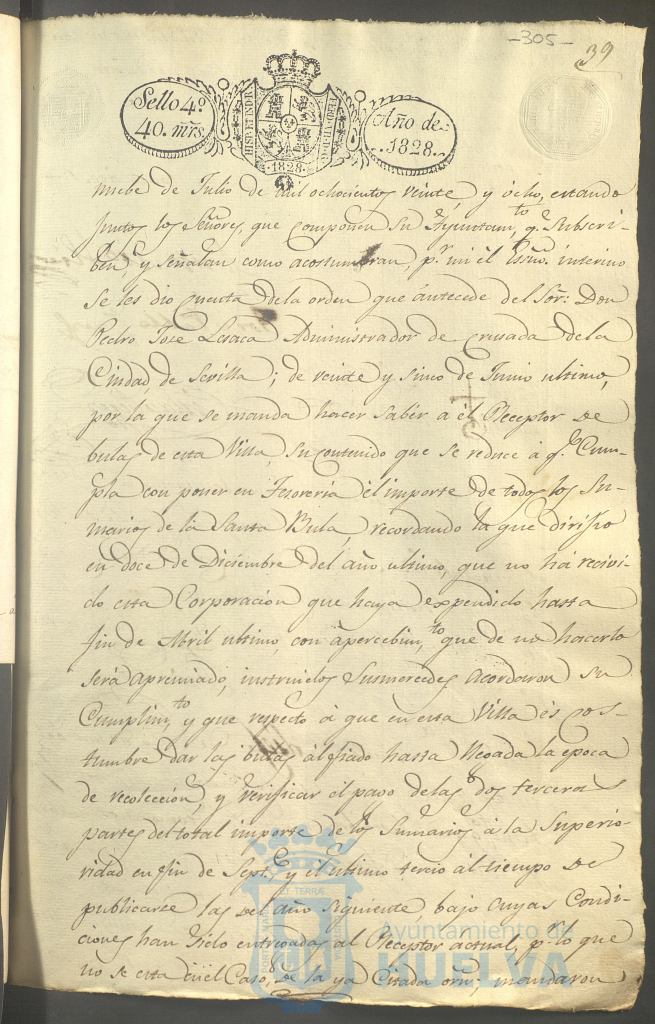 -305-
39
Sello 4º
40. mrs
HISP. ET IND. R.
1828
Año de
1828.
nuebe de Julio de mil ochocientos veinte y ocho, estando
juntos los Señores, que componen su Ayuntamto, q.e Subscri-
ben y señalan como acostumbran, pr. mi el Essno. interino
se les dio cuenta dela orden que ántecede del Sor: Don
Pedro Jose Lesaca Administrador de Crusada dela
Ciudad de Sevilla; de veinte y sinco de Junio ultimo,
por la que se manda hacer saber á él Receptor de
bulas de esta Villa, su contenido que se reduce á q.e Cum-
pla con poner en Tesoreria él importe de todos los Su-
marios de la Santa Bula, recordando la que dirijio
en doce de Diciembre del año ultimo, que no há recivi-
do esta Corporacion que haya expendido hasta
fin de Abril ultimo, con ápercebimto que de no hacerlo
será ápremiado, instruidos Susmercedes acordaron su
Cumplimto y que respecto á que en esta Villa és cos-
tumbre dar las bulas álfiado hasta llegada la epoca
de recoleccion, y verificar el pago delas dos terceras
partes del total importe de los Sumarios á la Superio-
ridad en fin de Sept.e y él ultimo tercio ál tiempo de
publicarce las del año siguiente, bajo cuyas Condi-
ciones han sido entregadas al Receptor actual, p.r lo que
no se esta en él Caso, de la ya Citada orn; mandaron
Ayuntamiento de
HUELVA